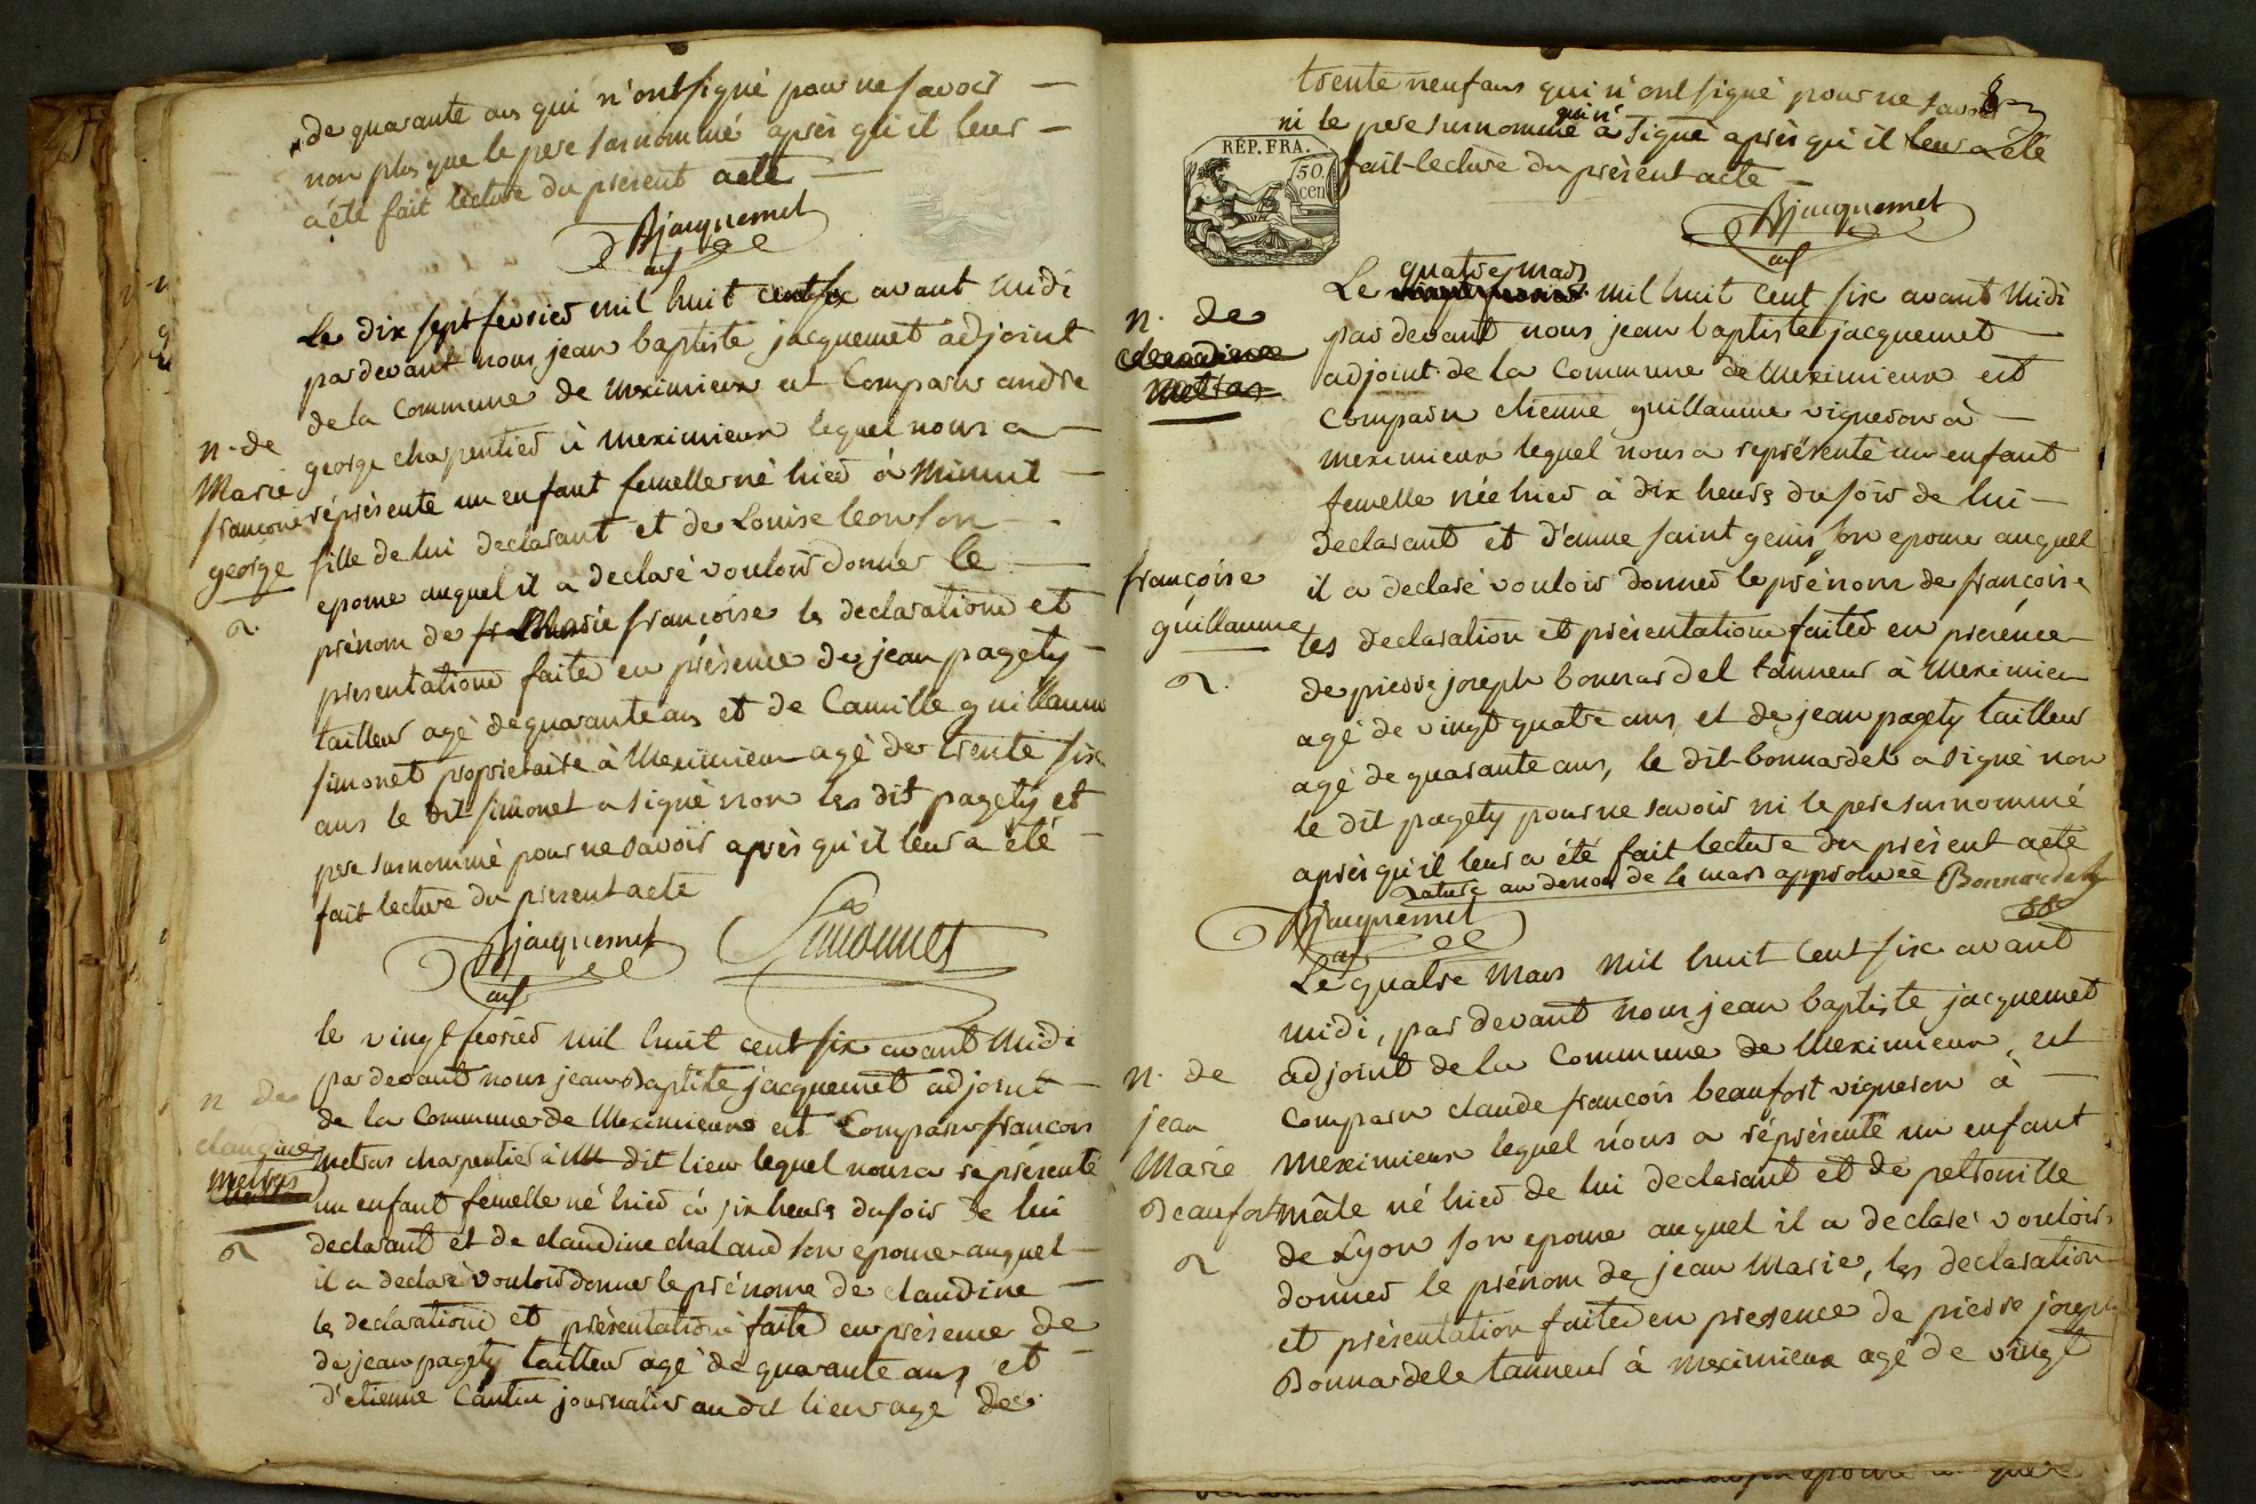 de quarante ans qui n'ont signé pour ne savoir
non plus que le pere surnommé après qu'il leur
a été fait lecture du present acte
Bjacquemet
adj
Le dix sept fevrier mil huit cent six avant midi
par devant nous jean baptiste jacquemet adjoint
de la Commune de meximieux est Comparu andre
george charpentier à meximieux lequel nous a
répresenté un enfant femelle né hier à Minuit
fille de lui declarant et de Louise leon son
epouse auquel il a declaré vouloir donner le
prénom de fr Marie françoise les declarations et
presentations faites en présence de jean pagety
tailleur agé de quarante ans et de Camille guillaume
simonet proprietaire à Meximieux agé de trente six
ans le dit simonet a signé non les dit pagety et
pere surnommé pour ne savoir après qu'il leur a été
fait lecture du present acte
Bjacquemet Simonnet
adj
n. de
Marie
françoise
george
le vingt fevrier mil huit cent six avant midi
par devant nous jean Baptiste jacquemet adjoint
de la Commune de Meximieux est Comparu francois
metras charpentier à M dit lieu lequel nous a représenté
un enfant femelle né hier à six heures du soir de lui
declarant et de claudine chaland son epouse auquel
il a declaré vouloir donner le prénom de claudine
les declarations et présentations faites en présence de
de jean pagety tailleur agé de quarante ans et
d'etienne Cantin journalier au dit lieu agé de
n de
claudine
metras
trente neuf ans qui n'ont signé pour ne savoir
ni le pere surnommé qui n'a signé après qu'il leur a été
fait lecture du présent acte
8
RÉP. FRA.
50
cen
Bjacquemet
adj
Le vingt fevrier quatre mars mil huit cent six avant Midi
par devant nous jean baptiste jacquemet
adjoint de la Commune de Meximieux est
Comparu etienne guillaume vigneron à
meximieux lequel nous a représenté un enfant
femelle née hier à dix heures du soir de lui
declarant et d'anne saint genis son epouse auquel
il a declaré vouloir donner le prénom de françoise
les declaration et présentation faites en presence
de pierre joseph bonnardel tanneur à Meximieux
agé de vingt quatre ans, et de jean pagety tailleur
agé de quarante ans, le dit bonnardel a signé non
le dit pagety pour ne savoir ni le pere surnommé
après qu'il leur a été fait lecture du présent acte
rature au dessous de 4 mars approuvée Bonnardel
Bjacquemet
adj
n. de
claudine
metras
françoise
guillaume
Le quatre Mars Mil huit Cent six avant
midi, par devant nous jean baptiste jacquemet
adjoint de la Commune de Meximieux, est
Comparu claude francois beaufort vigneron à
Meximieux lequel nous a réprésenté un enfant
mâle né hier de lui declarant et de petronille
de Lyon son epouse auquel il a declaré vouloir
donner le prénom de jean Marie, les declaration
et présentation faites en presence de pierre joseph
Bonnardele tanneur à meximieux agé de vingt
n. de
jean
Marie
Beaufort